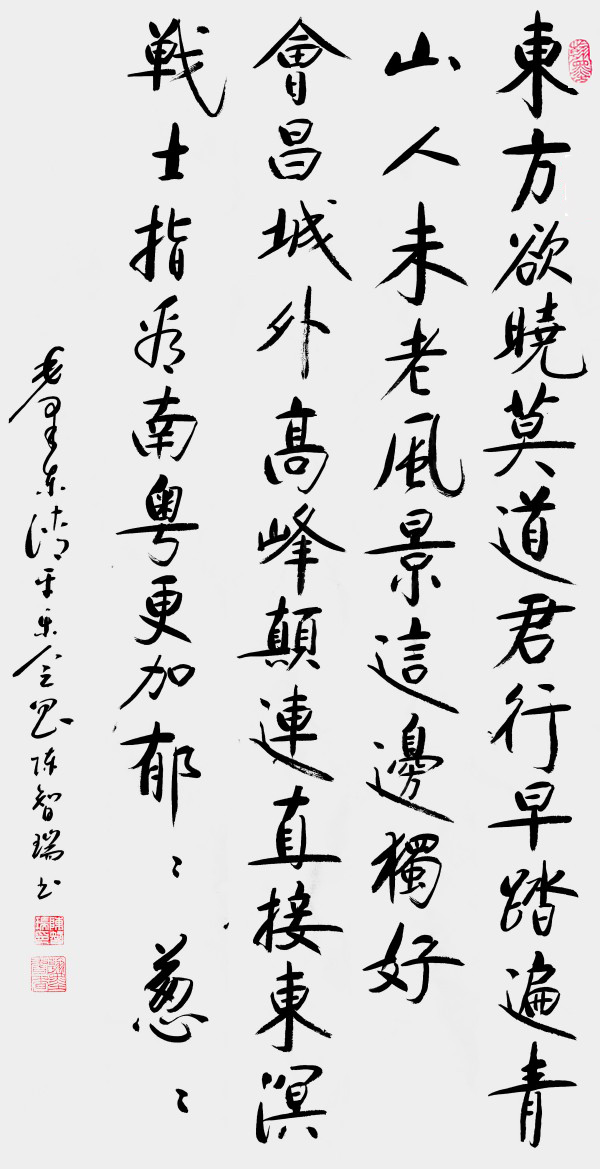 東方欲曉莫道君行早踏遍青
山人未老風景這邊獨好
會昌城外高峰顛連直接東溟
戰士指看南粵更加郁〻葱〻
毛泽东清平乐会昌陈智瑞书